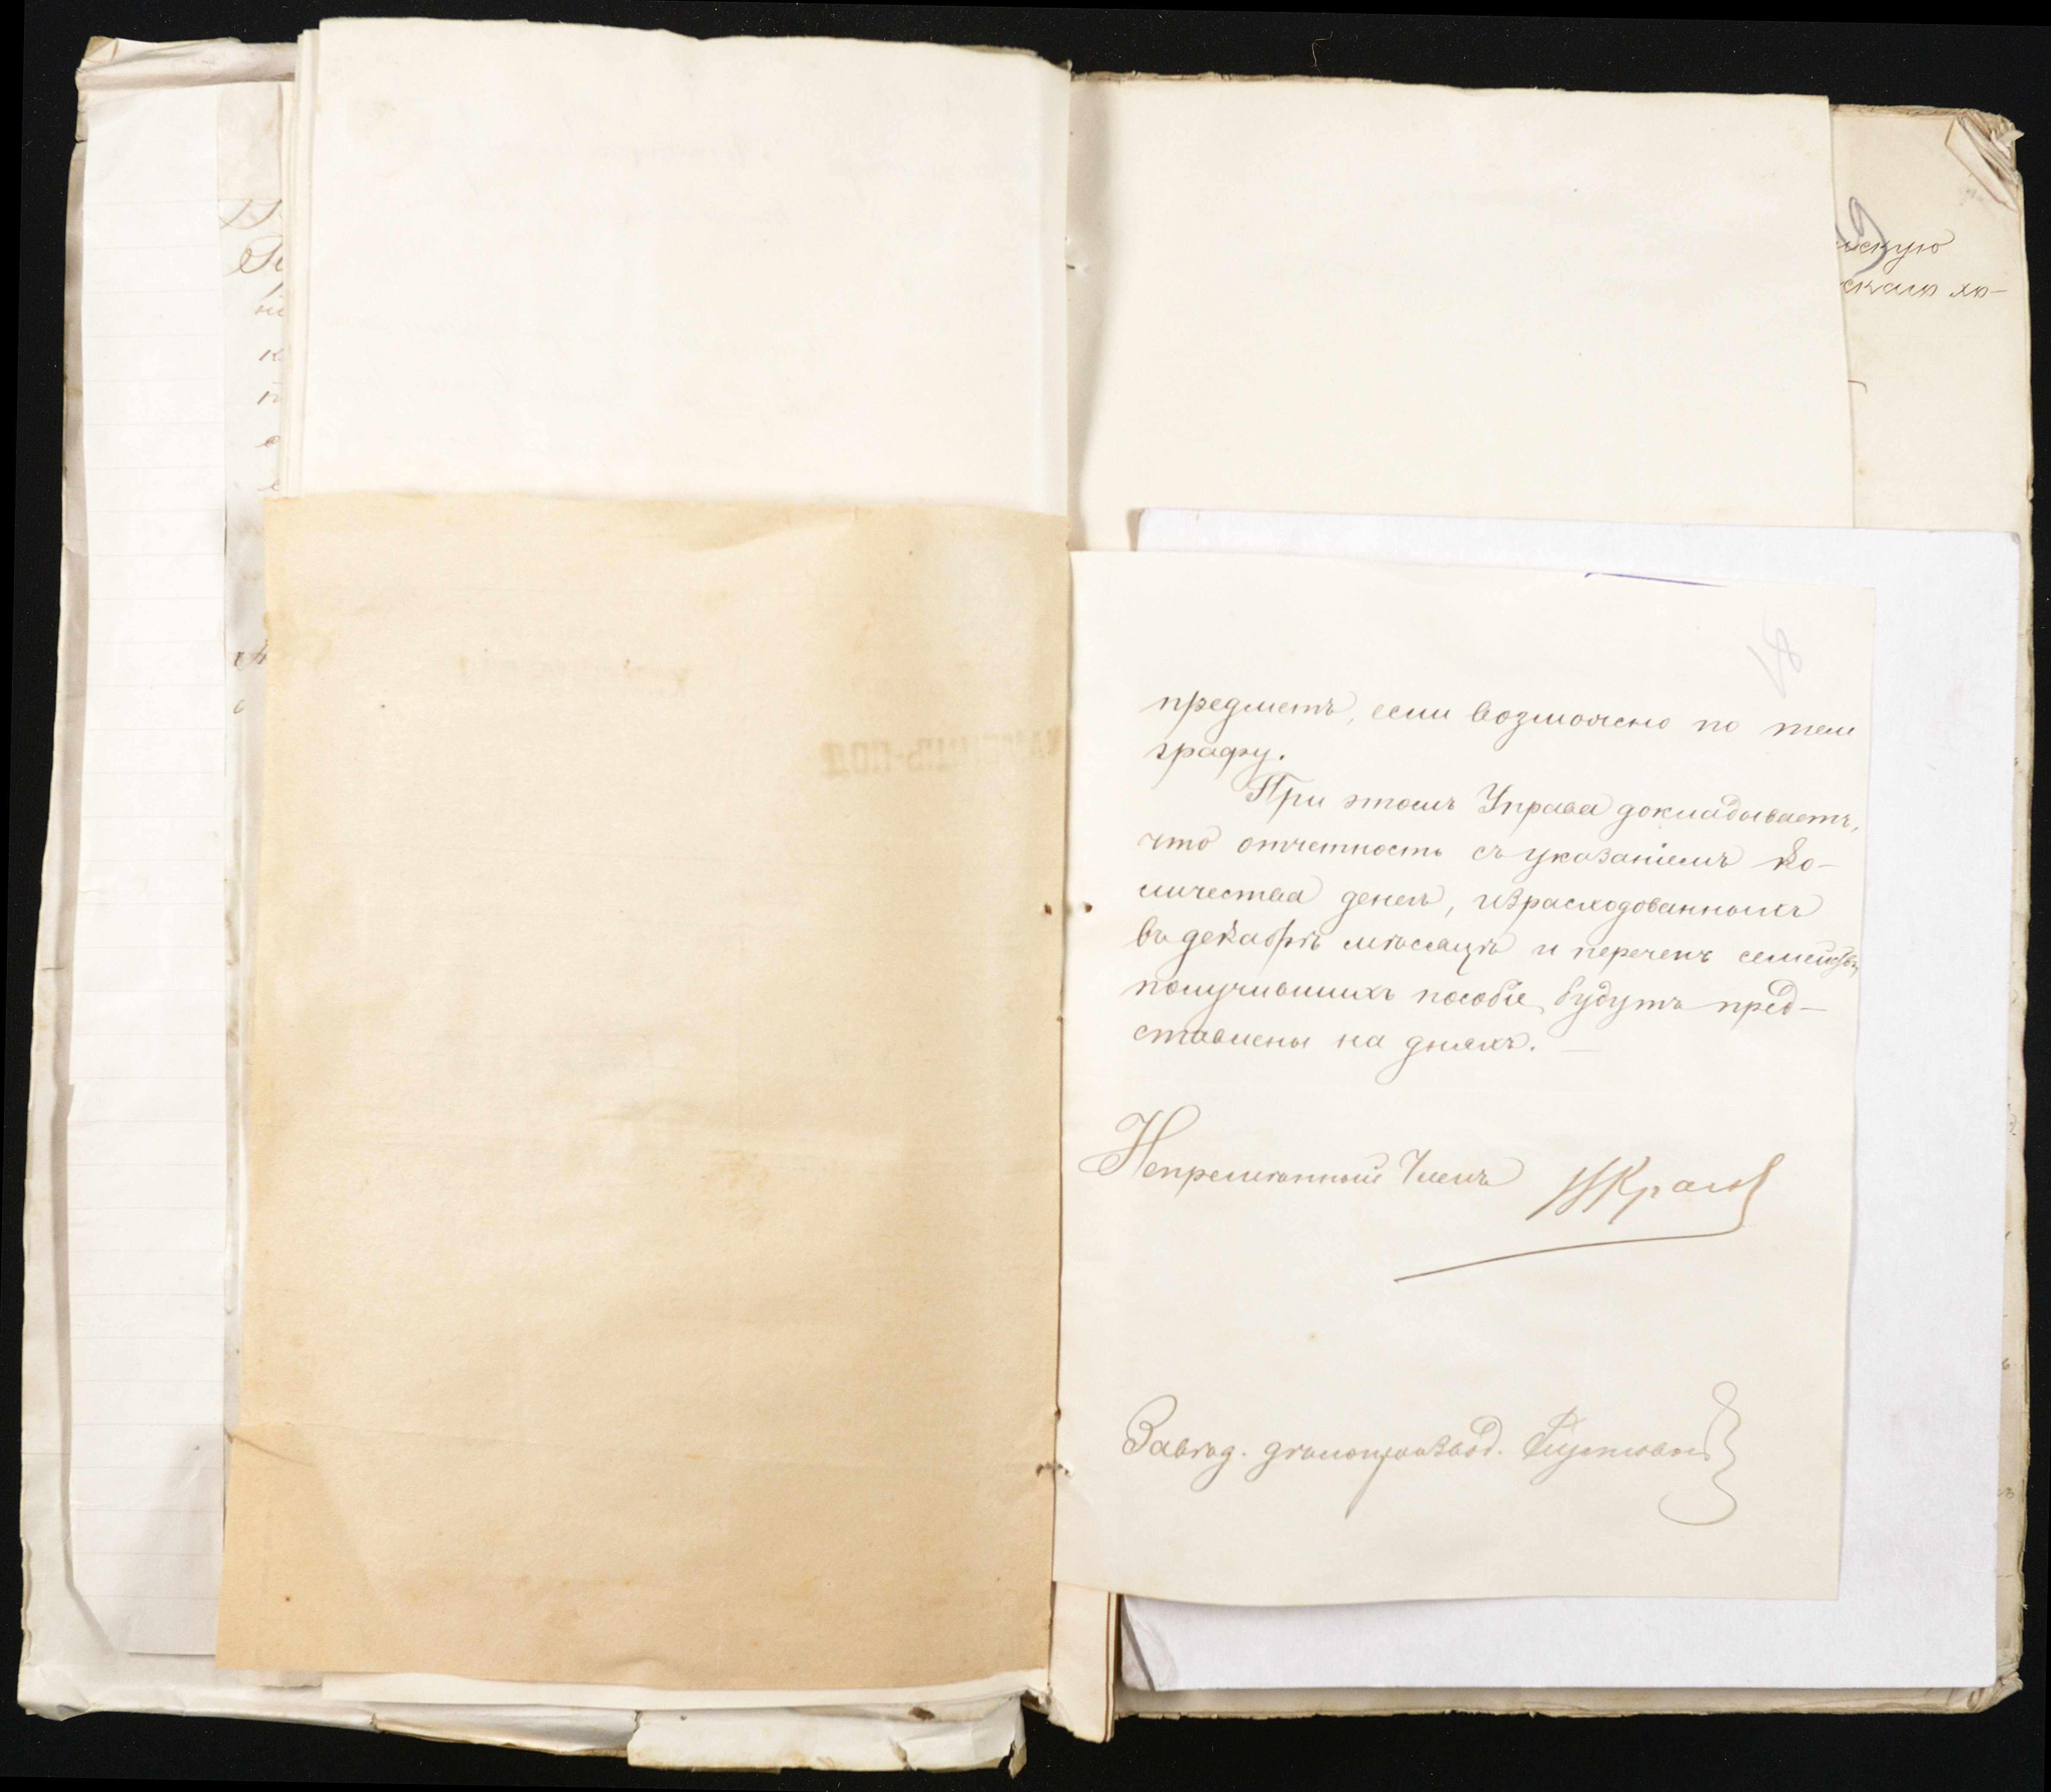 скую
скаго хо-
18
предметъ, если возможно по теле
графу.
При этомъ Управа докладываетъ,
что отчетность съ указаніемъ ко-
личества денегъ, израсходованныхъ
въ декабрѣ мѣсяцѣ и перечень семействъ,
получившихъ пособіе, будутъ пред-
ставлены на дняхъ. —
Непремѣнный Членъ
Завѣд. дѣлопроизвод.